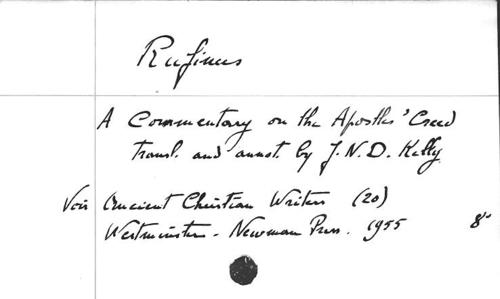 Rufinus
A Commentary on the Apostles' Creed
transl. and annot. by J.N.D. Kelly
Voir Ancient Christian Writers (20)
Westminster - Newman Press. 1955 8°